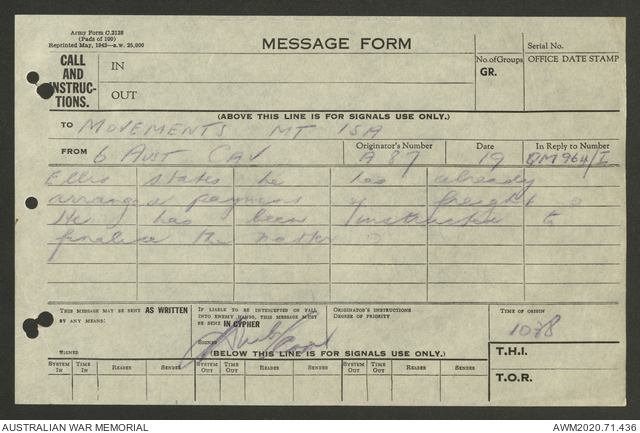 Army Form C.2128
(Pads of 100)
Reprinted May, 1943—a.w. 25,000
MESSAGE FORM
Serial No.
CALL
AND
INSTRUC-
TIONS.
IN
OUT
No. of Groups
GR.
OFFICE DATE STAMP
(ABOVE THIS LINE IS FOR SIGNALS USE ONLY.)
TO MOVEMENTS MT ISA
FROM 6 AUST CAV
Originator's Number
A87
Date
19
In Reply to Number
QM964/I
Ellis states he has already
arranged payment of freight
He has been instructed to
finalise the matter
THIS MESSAGE MAY BE SENT AS WRITTEN
BY ANY MEANS:
SIGNED
IF LIABLE TO BE INTERCEPTED OR FALL
INTO ENEMY HANDS, THIS MESSAGE MUST
BE SENT IN CYPHER
SIGNED
ORIGINATOR'S INSTRUCTIONS
DEGREE OF PRIORITY
TIME OF ORIGIN
1038
(BELOW THIS LINE IS FOR SIGNALS USE ONLY.)
T.H.I.
T.O.R.
SYSTEM IN TIME IN READER SENDER SYSTEM OUT TIME OUT READER SENDER SYSTEM OUT TIME OUT READER SENDER
AUSTRALIAN WAR MEMORIAL
AWM2020.71.436